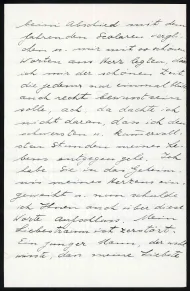 beim Abschied mit dem
fahrenden Scolaren vergli-
chen u. mir mit so schönen
Worten ans Herz legten, dass
ich mir der schönen Zeit
die jedem nur einmal blüht
auch recht bewusst sein
solle, ach, da dachte ich
nicht daran, dass ich den
schwersten u. kummervoll-
sten Stunden meines Le-
bens entgegen gehe. Ich
habe Sie in das Geheim-
nis meines Herzens ein-
geweiht u. nun schulde
ich Ihnen auch über diese
Worte Aufschluss. Mein
Liebestraum ist zerstört.
Ein junger Mann, der nicht
wusste, den meine Liebste